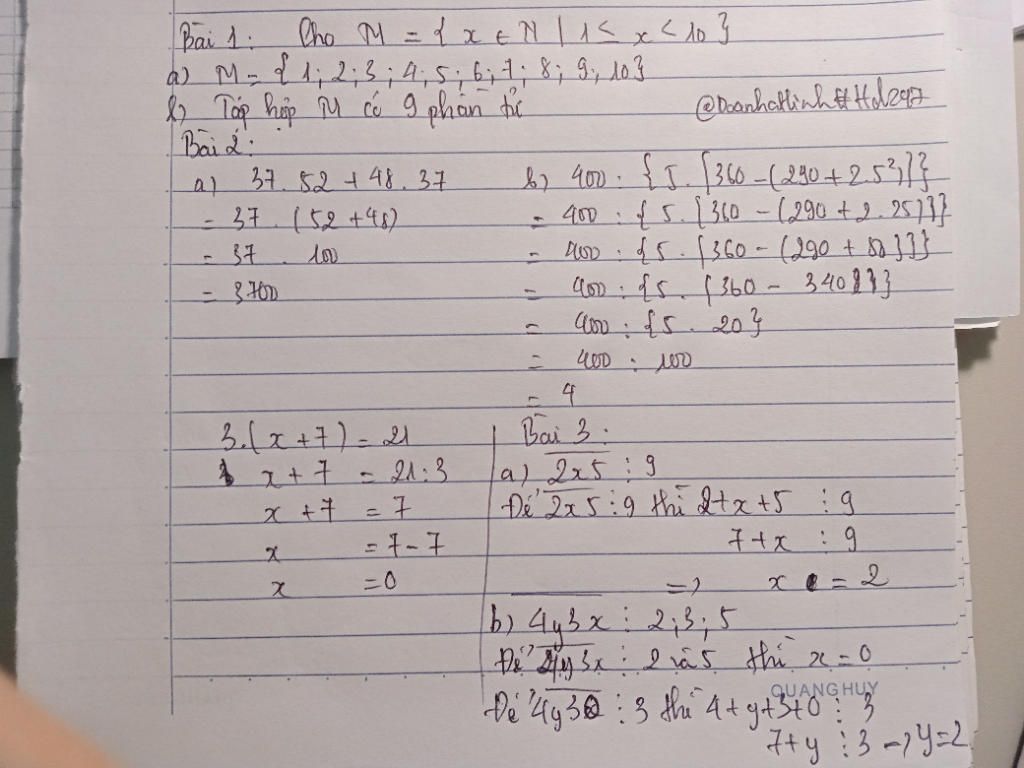 Bài 1: Cho M = { x ∈ N | 1 ≤ x < 10 }
a) M = { 1; 2; 3; 4; 5; 6; 7; 8; 9; 10}
b) Tập hợp M có 9 phần tử
@DoanhatlinhHd297
Bài 2:
a) 37 . 52 + 48 . 37
= 37 . (52 + 48)
= 37 . 100
= 3700
b) 400 : { 5 . [360 - (290 + 2.5²)]}
= 400 : { 5 . [360 - (290 + 2.25)]}
= 400 : {5 . [360 - (290 + 50)]}
= 400 : {5 . [360 - 340]}
= 400 : {5 . 20}
= 400 : 100
= 4
3.(x + 7) = 21
x + 7 = 21 : 3
x + 7 = 7
x = 7 - 7
x = 0
Bài 3:
a) 2x5 ⋮ 9
Để 2x5 ⋮ 9 thì 2 + x + 5 ⋮ 9
7 + x ⋮ 9
=> x = 2
b) 4y3x ⋮ 2; 3; 5
Để 4y3x ⋮ 2 và 5 thì x = 0
QUANG HUY
Để 4y30 ⋮ 3 thì 4 + y + 3 + 0 ⋮ 3
7 + y ⋮ 3 -> y = 2